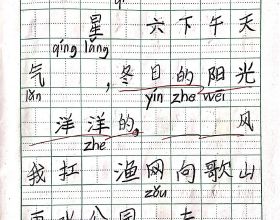 星 六下午天
qíng lǎng
气 ，冬日的阳光
lǎn yín zhe wēi
洋洋的， 风
zhe
我扛 渔网向歌山
zǒu
公园